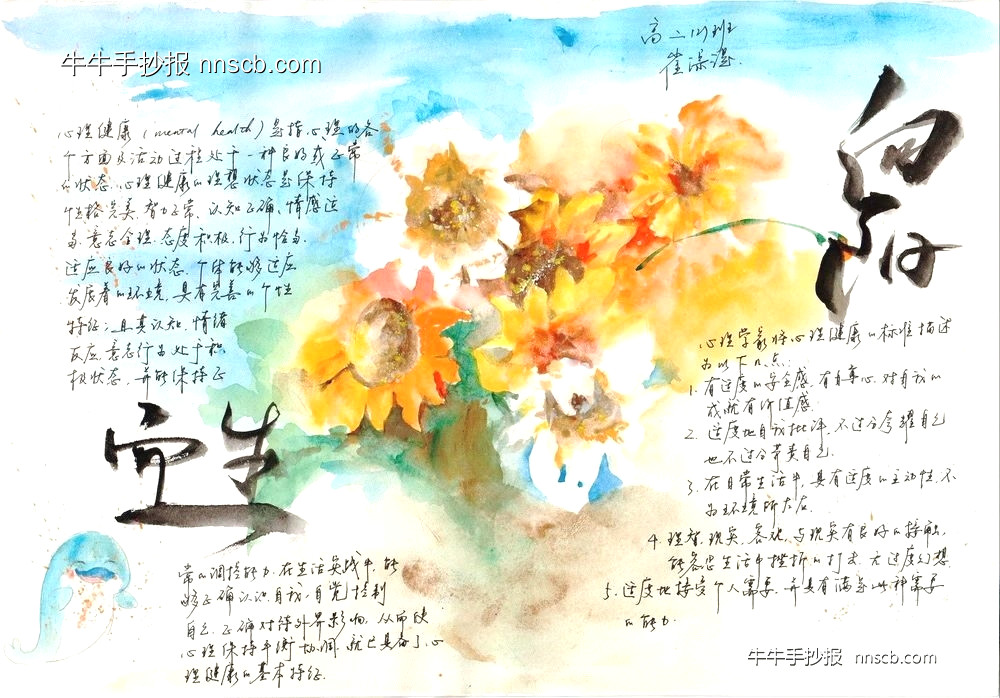 牛牛手抄报 nnscb.com
高二(2)班
心理健康(mental health)是指心理的各
个方面及活动过程处于一种良好或正常
的状态。心理健康的理想状态是保持
性格完美、智力正常、认知正确、情感适
当、意志合理、态度积极、行为恰当、
适应良好的状态。个体能够适应
发展着的环境,具有完善的个性
特征;且其认知、情绪
反应、意志行为处于积
极状态,并能保持正
常的调控能力。在生活实践中,能
够正确认识自我,自觉控制
自己,正确对待外界影响,从而使
心理保持平衡协调,就已具备了心
理健康的基本特征。
向
生
心理学家将心理健康的标准描述
为以下几点:
1. 有适度的安全感,有自尊心,对自我的
成就有价值感。
2. 适度地自我批评,不过分夸耀自己
也不过分苛责自己。
3. 在日常生活中,具有适度的主动性,不
为环境所左右。
4. 理智,现实,客观,与现实有良好的接触,
能容忍生活中挫折的打击,无过度幻想。
5. 适度地接受个人需要,并具有满足此种需要
的能力。
牛牛手抄报 nnscb.com